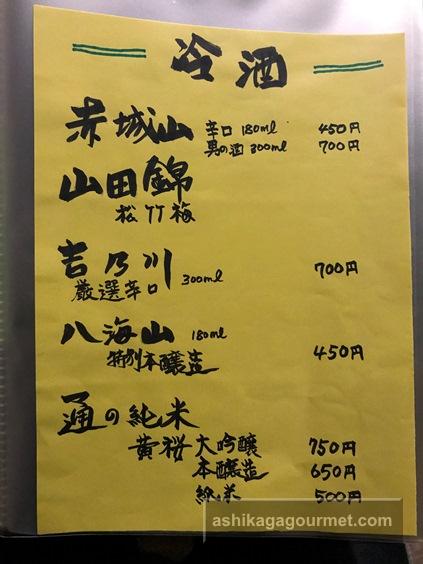 冷酒
赤城山 辛口 180ml 450円
男の酒 300ml 700円
山田錦
松竹梅
吉乃川 300ml 700円
厳選辛口
八海山 180ml
特別本醸造 450円
通の純米
黄桜 大吟醸 750円
本醸造 650円
純米 500円
ashikagagourmet.com